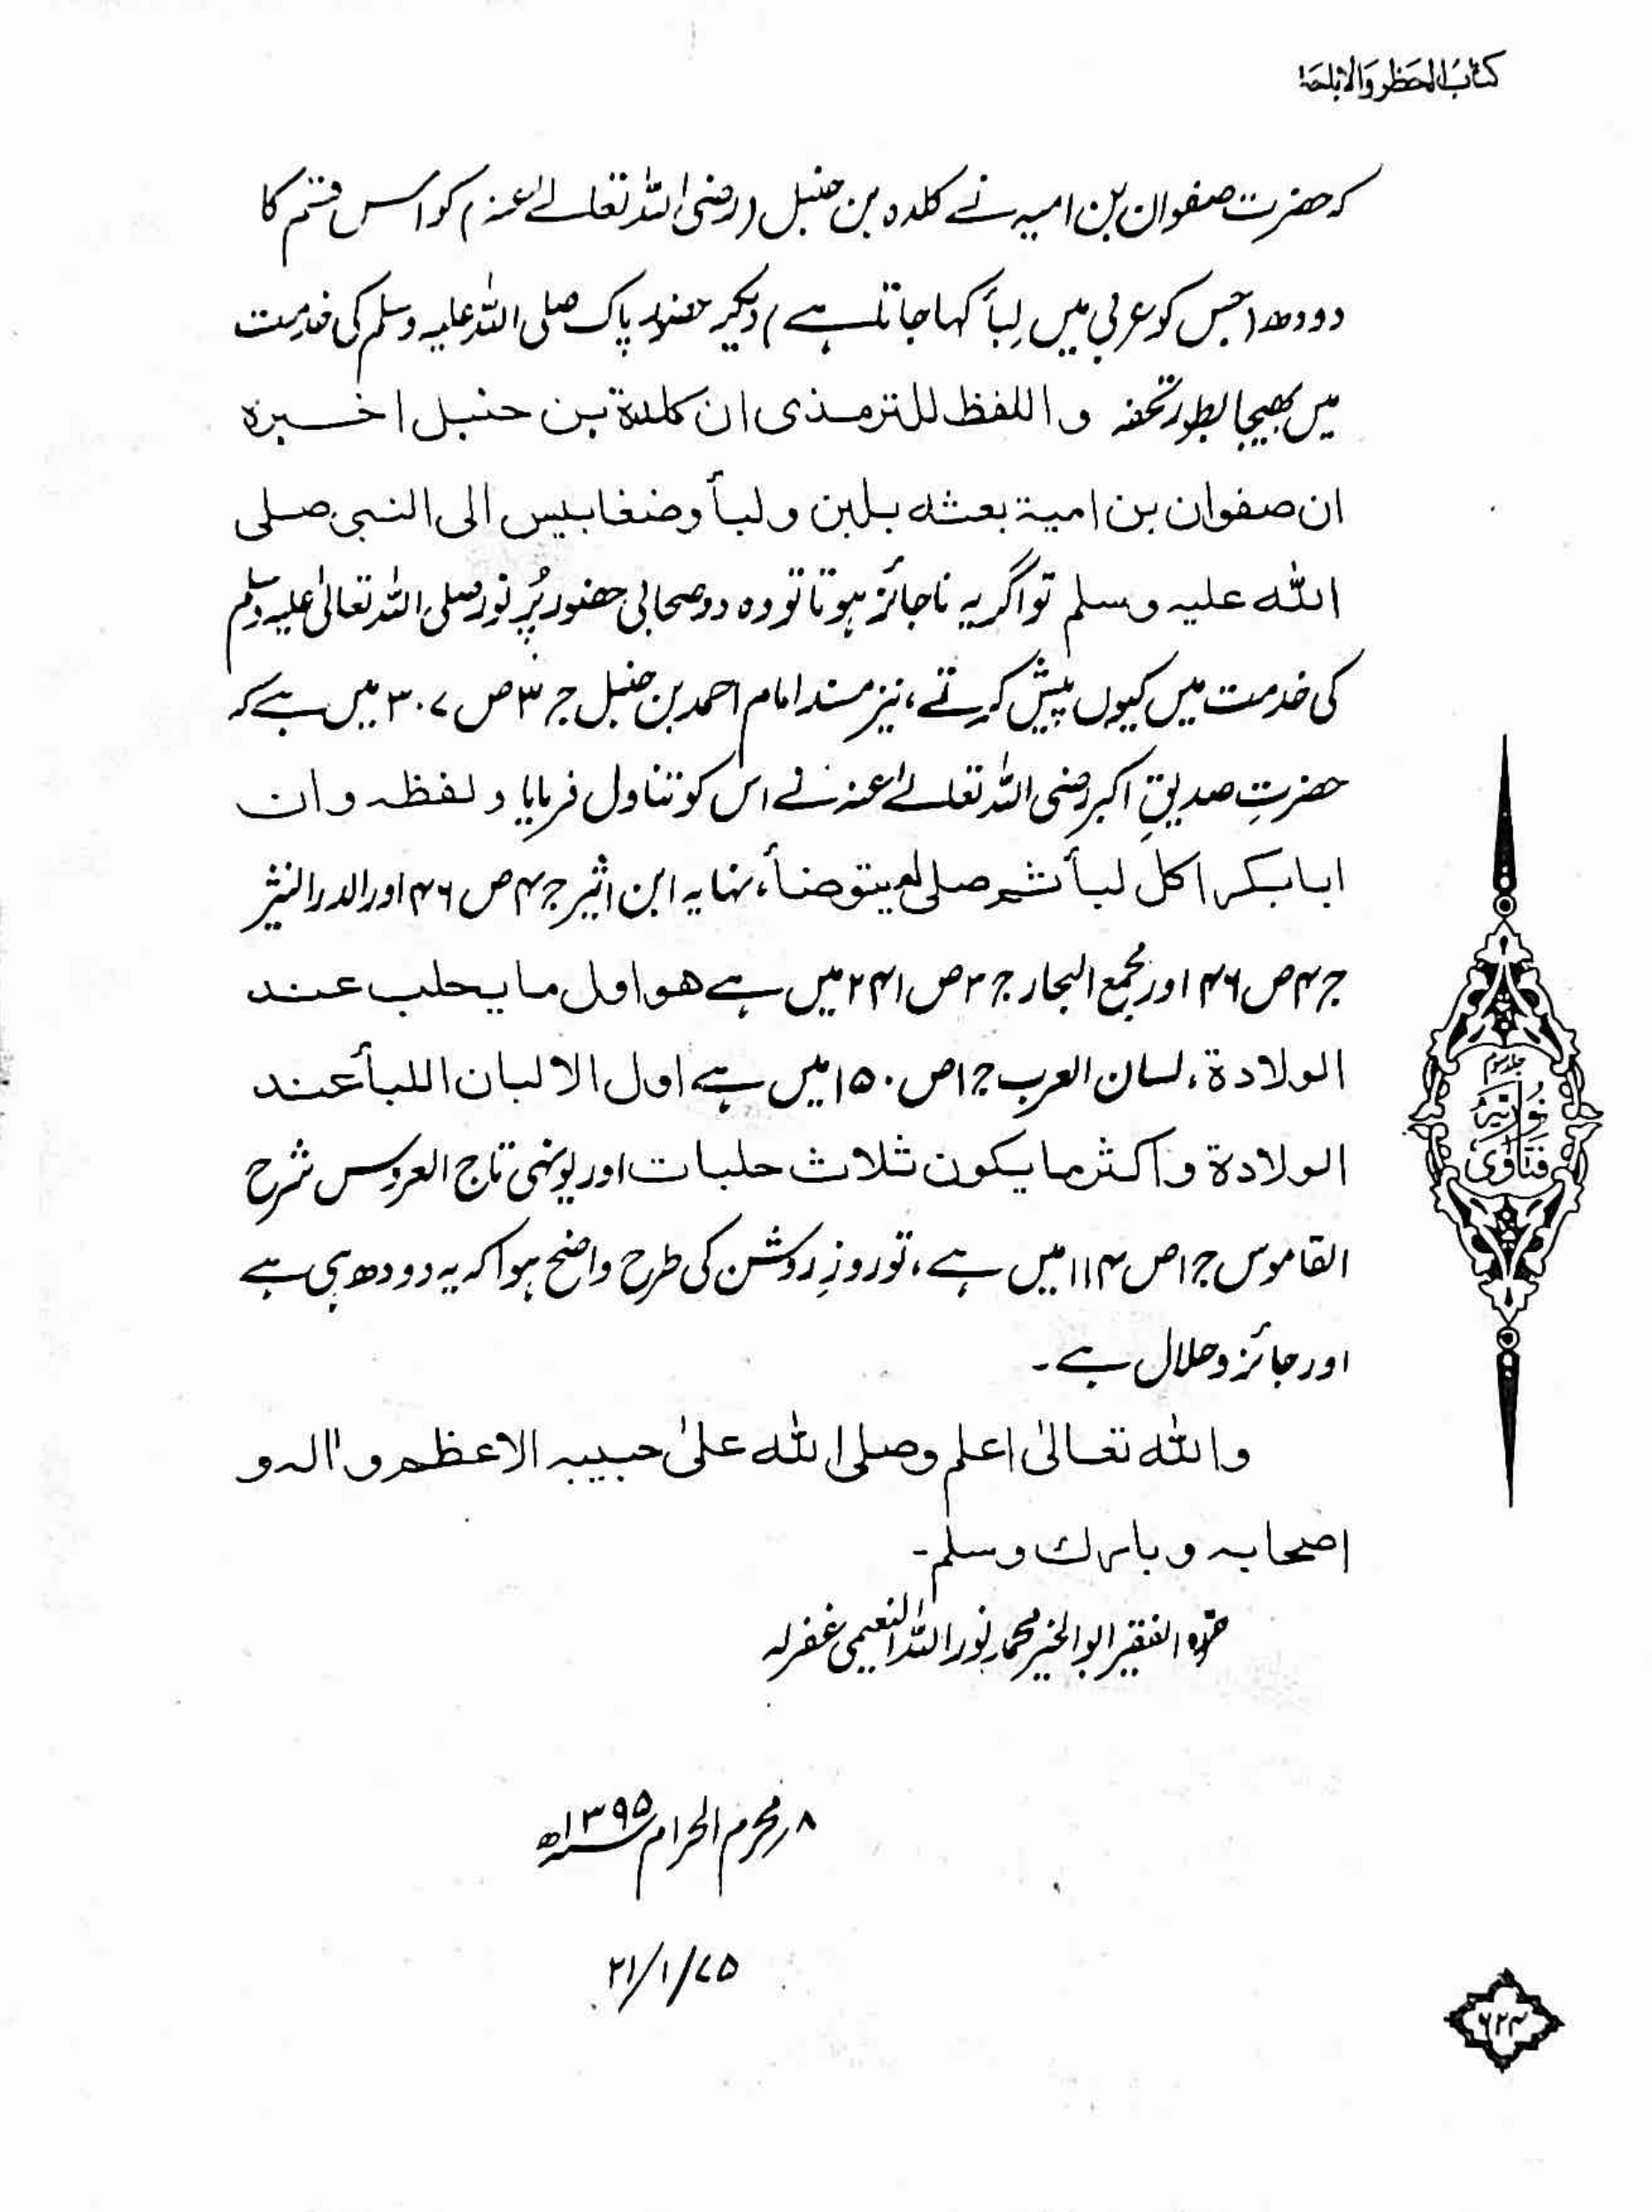 کتاب الحظر والاباحۃ
کہ حضرت صفوان بن امیہ نے کلدہ بن حنبل (رضی اللہ تعالےٰ عنہ) کو اس قسم کا
دودھ (جس کو عربی میں لِبأ کہا جاتا ہے) دیکر حضور پاک صلی اللہ علیہ وسلم کی خدمت
میں بھیجا بطور تحفہ و اللفظ للترمذی ان کلدۃ بن حنبل اخبرہ
ان صفوان بن امیۃ بعثہ بلبن ولبأ وضغابیس الی النبی صلی
اللہ علیہ وسلم تو اگر یہ ناجائز ہوتا تو وہ دو صحابی حضور پُر نور صلی اللہ تعالیٰ علیہ وسلم
کی خدمت میں کیوں پیش کرتے، نیز مسند امام احمد بن حنبل ج ۳ ص ۳۰۷ میں ہے کہ
حضرتِ صدیقِ اکبر رضی اللہ تعالےٰ عنہ نے اس کو تناول فرمایا ولفظہ وان
ابابکر اکل لبأ ثم صلی لم یتوضأ، نہایہ ابن اثیر ج ۴ ص ۴۶ اور الدر النثیر
ج ۴ ص ۴۶ اور مجمع البحار ج ۳ ص ۲۴۱ میں ہے ھو اول ما یحلب عند
الولادۃ، لسان العرب ج ۱ ص ۱۵۰ میں ہے اول الالبان اللبأ عند
الولادۃ واکثر ما یکون ثلاث حلبات اور یونہی تاج العروس شرح
القاموس ج ۱ ص ۱۱۴ میں ہے، تو روزِ روشن کی طرح واضح ہوا کہ یہ دودھ ہی ہے
اور جائز و حلال ہے۔
واللہ تعالیٰ اعلم وصلی اللہ علیٰ حبیبہ الاعظم واٰلہ و
اصحابہ وبارك وسلم۔
حررہ الفقیر ابوالخیر محمد نور اللہ النعیمی غفرلہ
۸ محرم الحرام ۱۳۹۵ھ
۲۱/۱/۷۵
جلد سوم
فتاویٰ نوریہ
۶۲۴